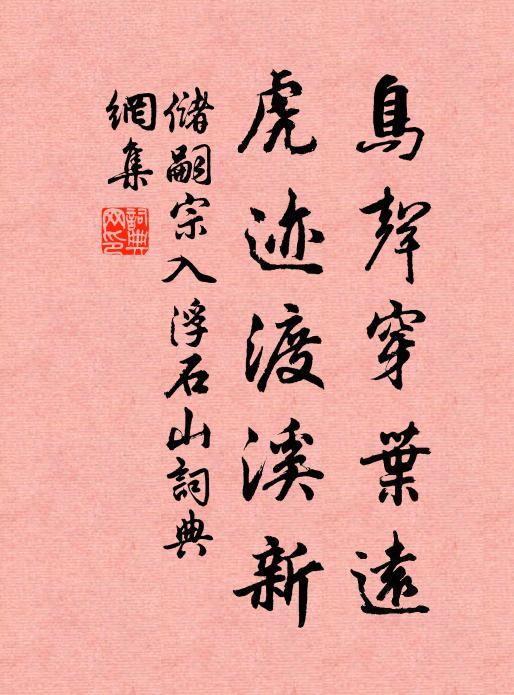 鳥聲穿葉遠
虎迹渡溪新
儲嗣宗入浮石山詞典
網集
詞典網印